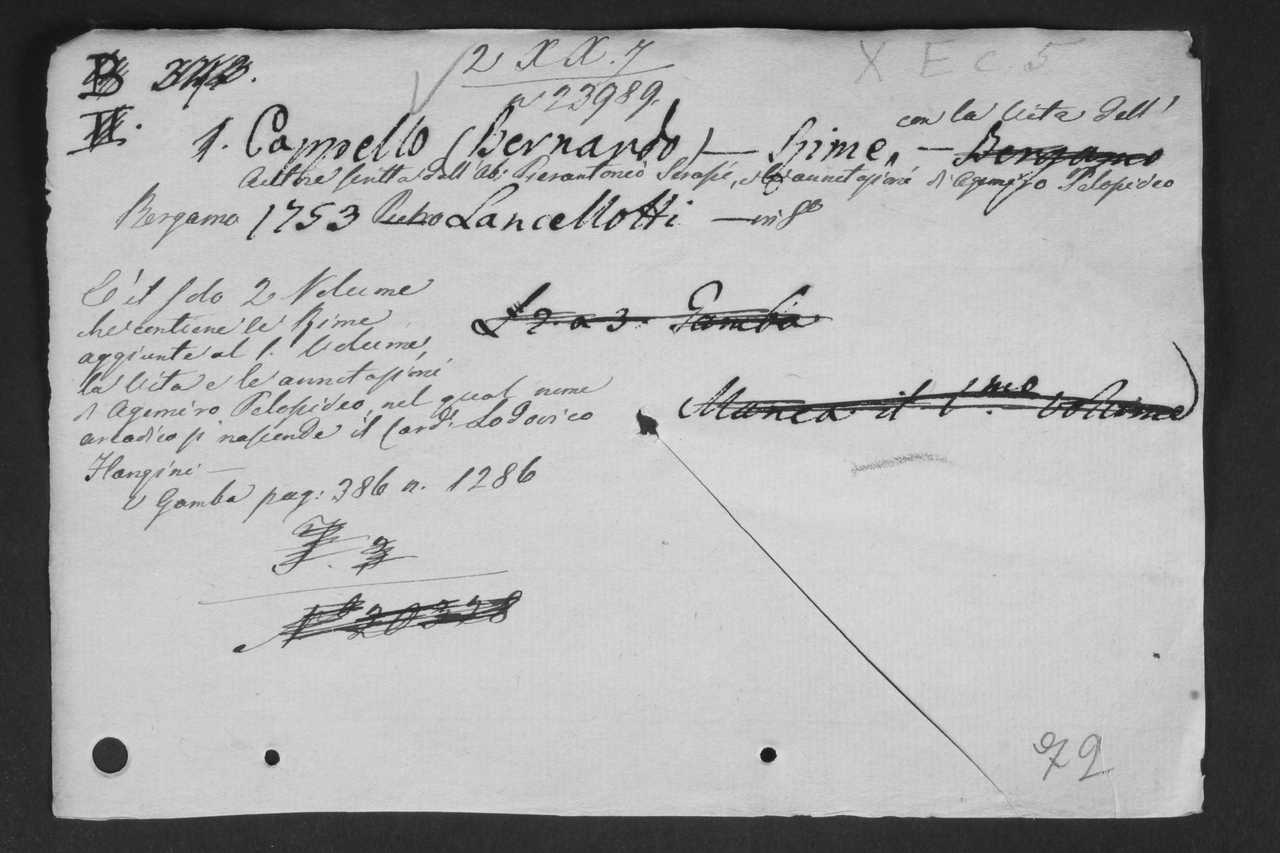 2 X X. 7
X E C. 5
B
n 23989.
II.
con la Vita dell'
1. Cappello (Bernardo) — Rime, — Bergamo
Autore scritta dall'Ab: Pierantonio Serassi, e le annotazioni di Agemiro Pelopideo
Bergamo 1753 Pietro Lancellotti — in 8º
C'è il solo 2 Volume
che contiene le Rime
L 2. a 3. Gamba
aggiunte al 1. Volume,
la Vita e le annotazioni
di Agemiro Pelopideo, nel qual nome
Manca il 1mo. Volume
arcadico si nasconde il Card. Lodovico
Flangini —
V Gamba pag: 386 n. 1286
Nº 20328
72